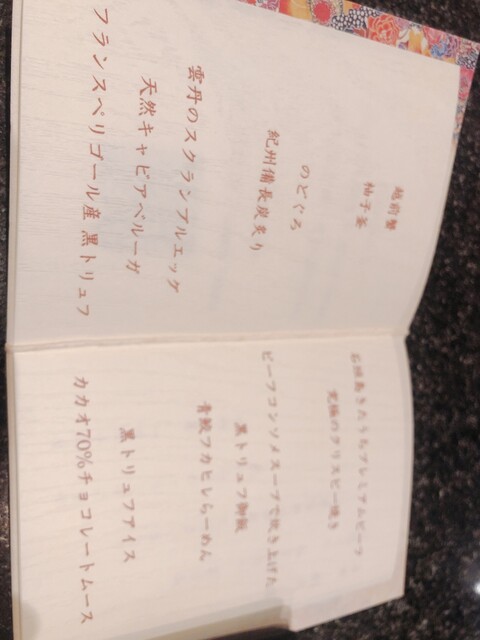 越前蟹
柚子釜
のどぐろ
紀州備長炭炙り
雲丹のスクランブルエッグ
天然キャビアベルーガ
フランスペリゴール産 黒トリュフ
石垣島きたうちプレミアムビーフ
究極のクリスピー焼き
ビーフコンソメスープで炊き上げた
黒トリュフ御飯
青鮫フカヒレらーめん
黒トリュフアイス
カカオ70%チョコレートムース